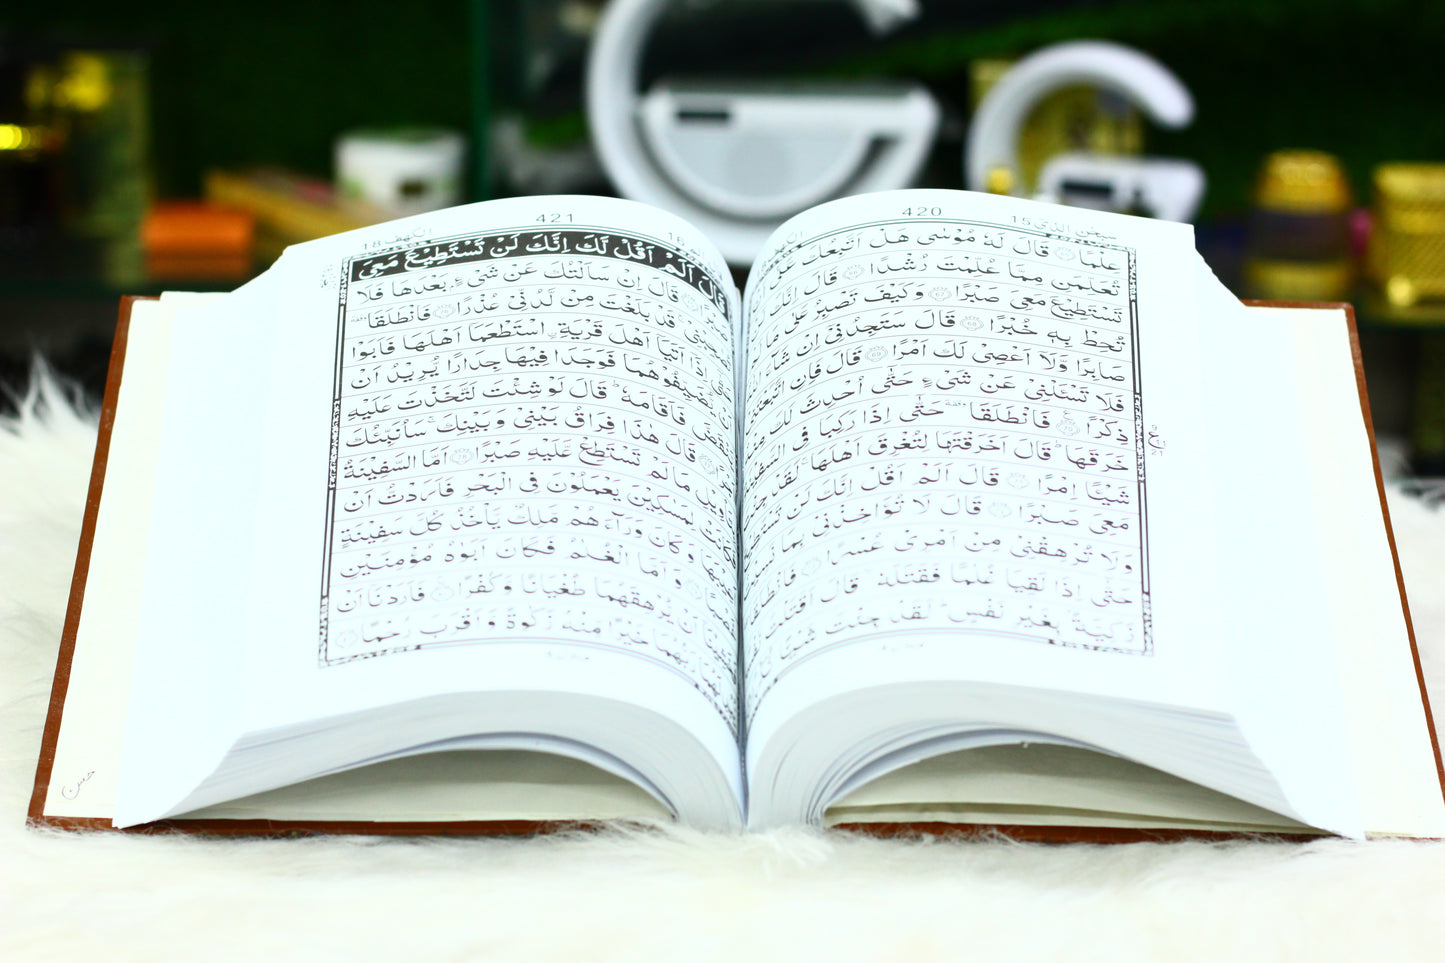 سبحٰن الذی 15
420
عُلِّمَا قَالَ لَهٗ مُوْسٰى هَلْ اَتَّبِعُكَ عَلٰٓى
تُعَلِّمَنِ مِمَّا عُلِّمْتَ رُشْدًا قَالَ اِنَّكَ
تَسْتَطِيْعَ مَعِىَ صَبْرًا وَكَيْفَ تَصْبِرُ عَلٰى مَا لَمْ
تُحِطْ بِهٖ خُبْرًا قَالَ سَتَجِدُنِىْۤ اِنْ شَآءَ
صَابِرًا وَّلَاۤ اَعْصِىْ لَكَ اَمْرًا قَالَ فَاِنِ اتَّبَعْتَنِىْ
فَلَا تَسْئَلْنِىْ عَنْ شَىْءٍ حَتّٰۤى اُحْدِثَ لَكَ مِنْهُ
ذِكْرًا فَانْطَلَقَا حَتّٰۤى اِذَا رَكِبَا فِى السَّفِيْنَةِ
خَرَقَهَا قَالَ اَخَرَقْتَهَا لِتُغْرِقَ اَهْلَهَا لَقَدْ جِئْتَ
شَيْئًا اِمْرًا قَالَ اَلَمْ اَقُلْ اِنَّكَ لَنْ تَسْتَطِيْعَ
مَعِىَ صَبْرًا قَالَ لَا تُؤَاخِذْنِىْ بِمَا نَسِيْتُ
وَلَا تُرْهِقْنِىْ مِنْ اَمْرِىْ عُسْرًا فَانْطَلَقَا
حَتّٰۤى اِذَا لَقِيَا غُلٰمًا فَقَتَلَهٗ قَالَ اَقَتَلْتَ
زَكِيَّةً بِغَيْرِ نَفْسٍ لَقَدْ جِئْتَ شَيْئًا
421
الكهف 18
قَالَ اَلَمْ اَقُلْ لَّكَ اِنَّكَ لَنْ تَسْتَطِيْعَ مَعِىَ
قَالَ اِنْ سَاَلْتُكَ عَنْ شَىْءٍ بَعْدَهَا فَلَا
قَدْ بَلَغْتَ مِنْ لَّدُنِّىْ عُذْرًا فَانْطَلَقَا
اِذَاۤ اَتَيَاۤ اَهْلَ قَرْيَةِ اسْتَطْعَمَاۤ اَهْلَهَا فَاَبَوْا
يُّضَيِّفُوْهُمَا فَوَجَدَا فِيْهَا جِدَارًا يُّرِيْدُ اَنْ
فَاَقَامَهٗ قَالَ لَوْ شِئْتَ لَتَّخَذْتَ عَلَيْهِ
قَالَ هٰذَا فِرَاقُ بَيْنِىْ وَبَيْنِكَ سَاُنَبِّئُكَ
مَا لَمْ تَسْتَطِعْ عَّلَيْهِ صَبْرًا اَمَّا السَّفِيْنَةُ
لِمَسٰكِيْنَ يَعْمَلُوْنَ فِى الْبَحْرِ فَاَرَدْتُّ اَنْ
وَكَانَ وَرَآءَهُمْ مَّلِكٌ يَّاْخُذُ كُلَّ سَفِيْنَةٍ
وَاَمَّا الْغُلٰمُ فَكَانَ اَبَوٰهُ مُؤْمِنَيْنِ
اَنْ يُّرْهِقَهُمَا طُغْيَانًا وَّكُفْرًا فَاَرَدْنَاۤ اَنْ
رَبُّهُمَا خَيْرًا مِّنْهُ زَكٰوةً وَّاَقْرَبَ رُحْمًا